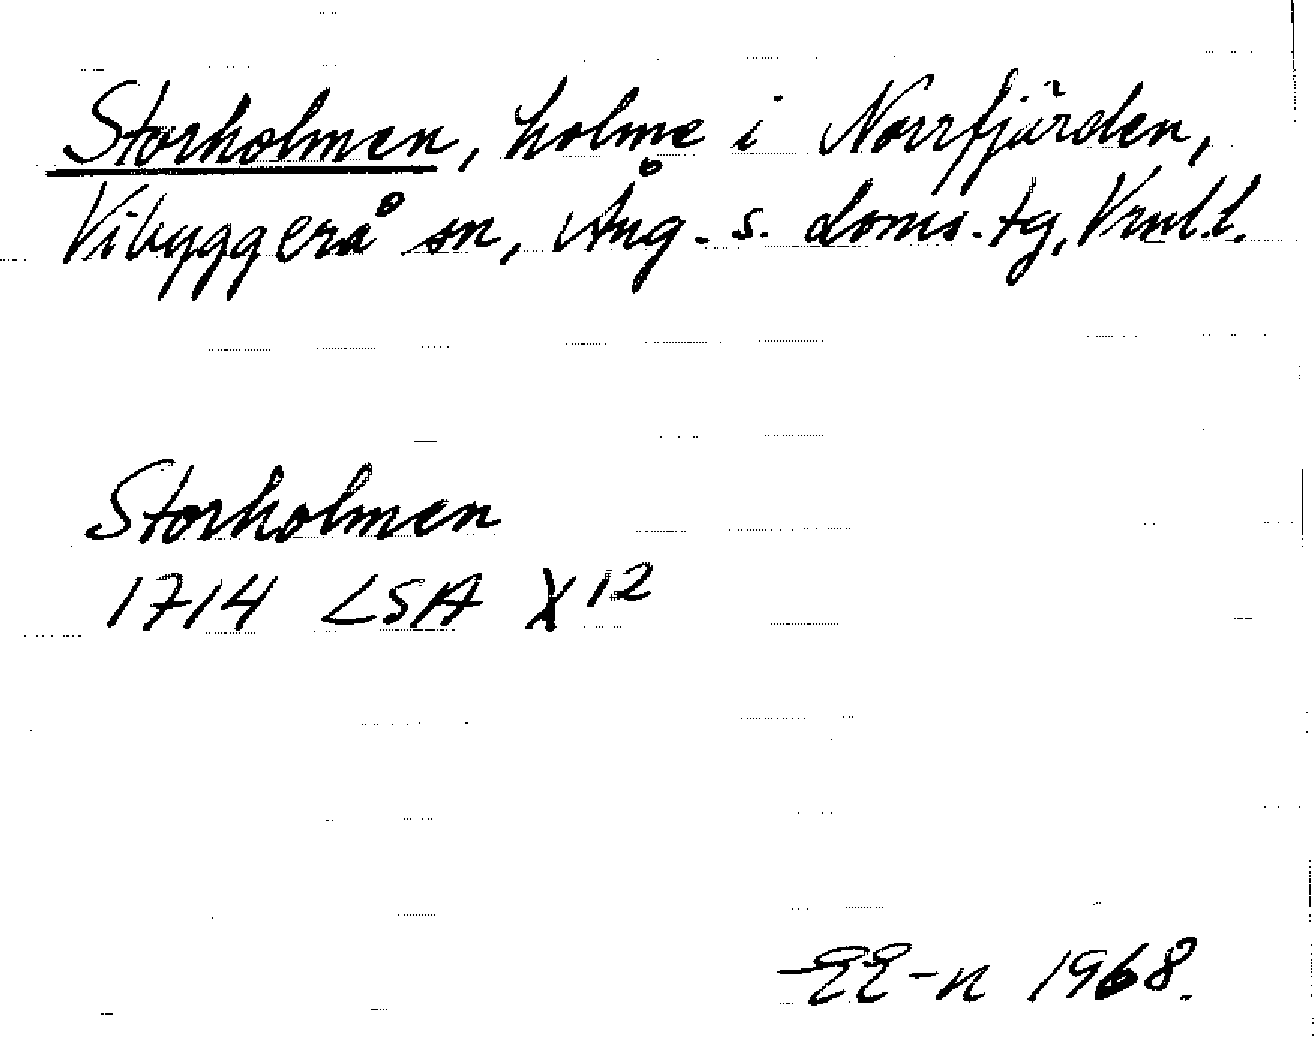 Storholmen, holme i Norrfjärden,
Vibyggerå sn, Ång. s. doms. tg, Vrnl.l.
Storholmen
1714 LSA X 12
EE-n 1968.